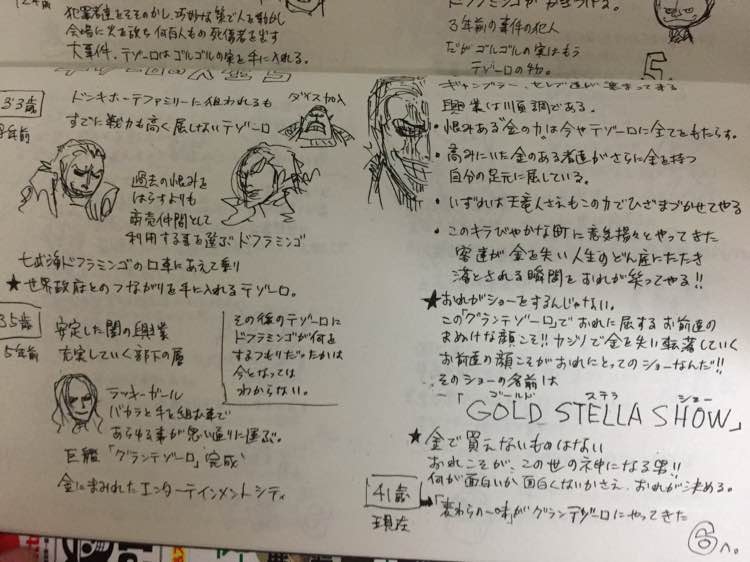 犯罪者達をそそのかし、巧妙な策で人を動かし
会場に火を放ち何百人もの死傷者を出す
大事件、テゾーロはゴルゴルの実を手に入れる。
33歳
ドンキホーテファミリーに狙われるも
すでに戦力も高く屈しないテゾーロ
ダイス加入
過去の恨みを
はらすよりも
商売仲間として
利用する事を選ぶドフラミンゴ
七武海ドフラミンゴの口車にあえて乗り
★世界政府とのつながりを手に入れるテゾーロ。
35歳
5年前
安定した闇の興業
充実していく部下の層
その後のテゾーロに
ドフラミンゴが何を
するつもりだったかは
今となっては
わからない。
ラッキーガール
バカラと手を組む事で
あらゆる事が思い通りに運ぶ。
巨艦「グランテゾーロ」完成
金にまみれたエンターテインメントシティ
3年前の事件の犯人
だがゴルゴルの実はもう
テゾーロの物。
5.
ギャンブラー、セレブ達が集まってきる
興業は順調である。
・恨みある"金の力"は今やテゾーロに全てをもたらす。
・高みにいた金のある者達がさらに金を持つ
自分の足元に屈している。
・いずれは天竜人さえもこの力でひざまづかせてやる
・このキラびやかな町に意気揚々とやってきた
客達が金を失い人生のどん底にたたき
落とされる瞬間をおれが笑ってやる!!
★おれがショーをするんじゃない。
この「グランテゾーロ」でおれに屈するお前達の
まぬけな顔こそ!!カジノで金を失い転落していく
お前達の顔こそがおれにとってのショーなんだ!!
そのショーの名前は
ゴールド ステラ ショー
「GOLD STELLA SHOW」
★金で買えないものはない
おれこそが、この世の神になる男!!
何が面白いか面白くないかさえ、おれが決める。
41歳
現在
➡「麦わらの一味」がグランテゾーロにやってきた
⑥へ。